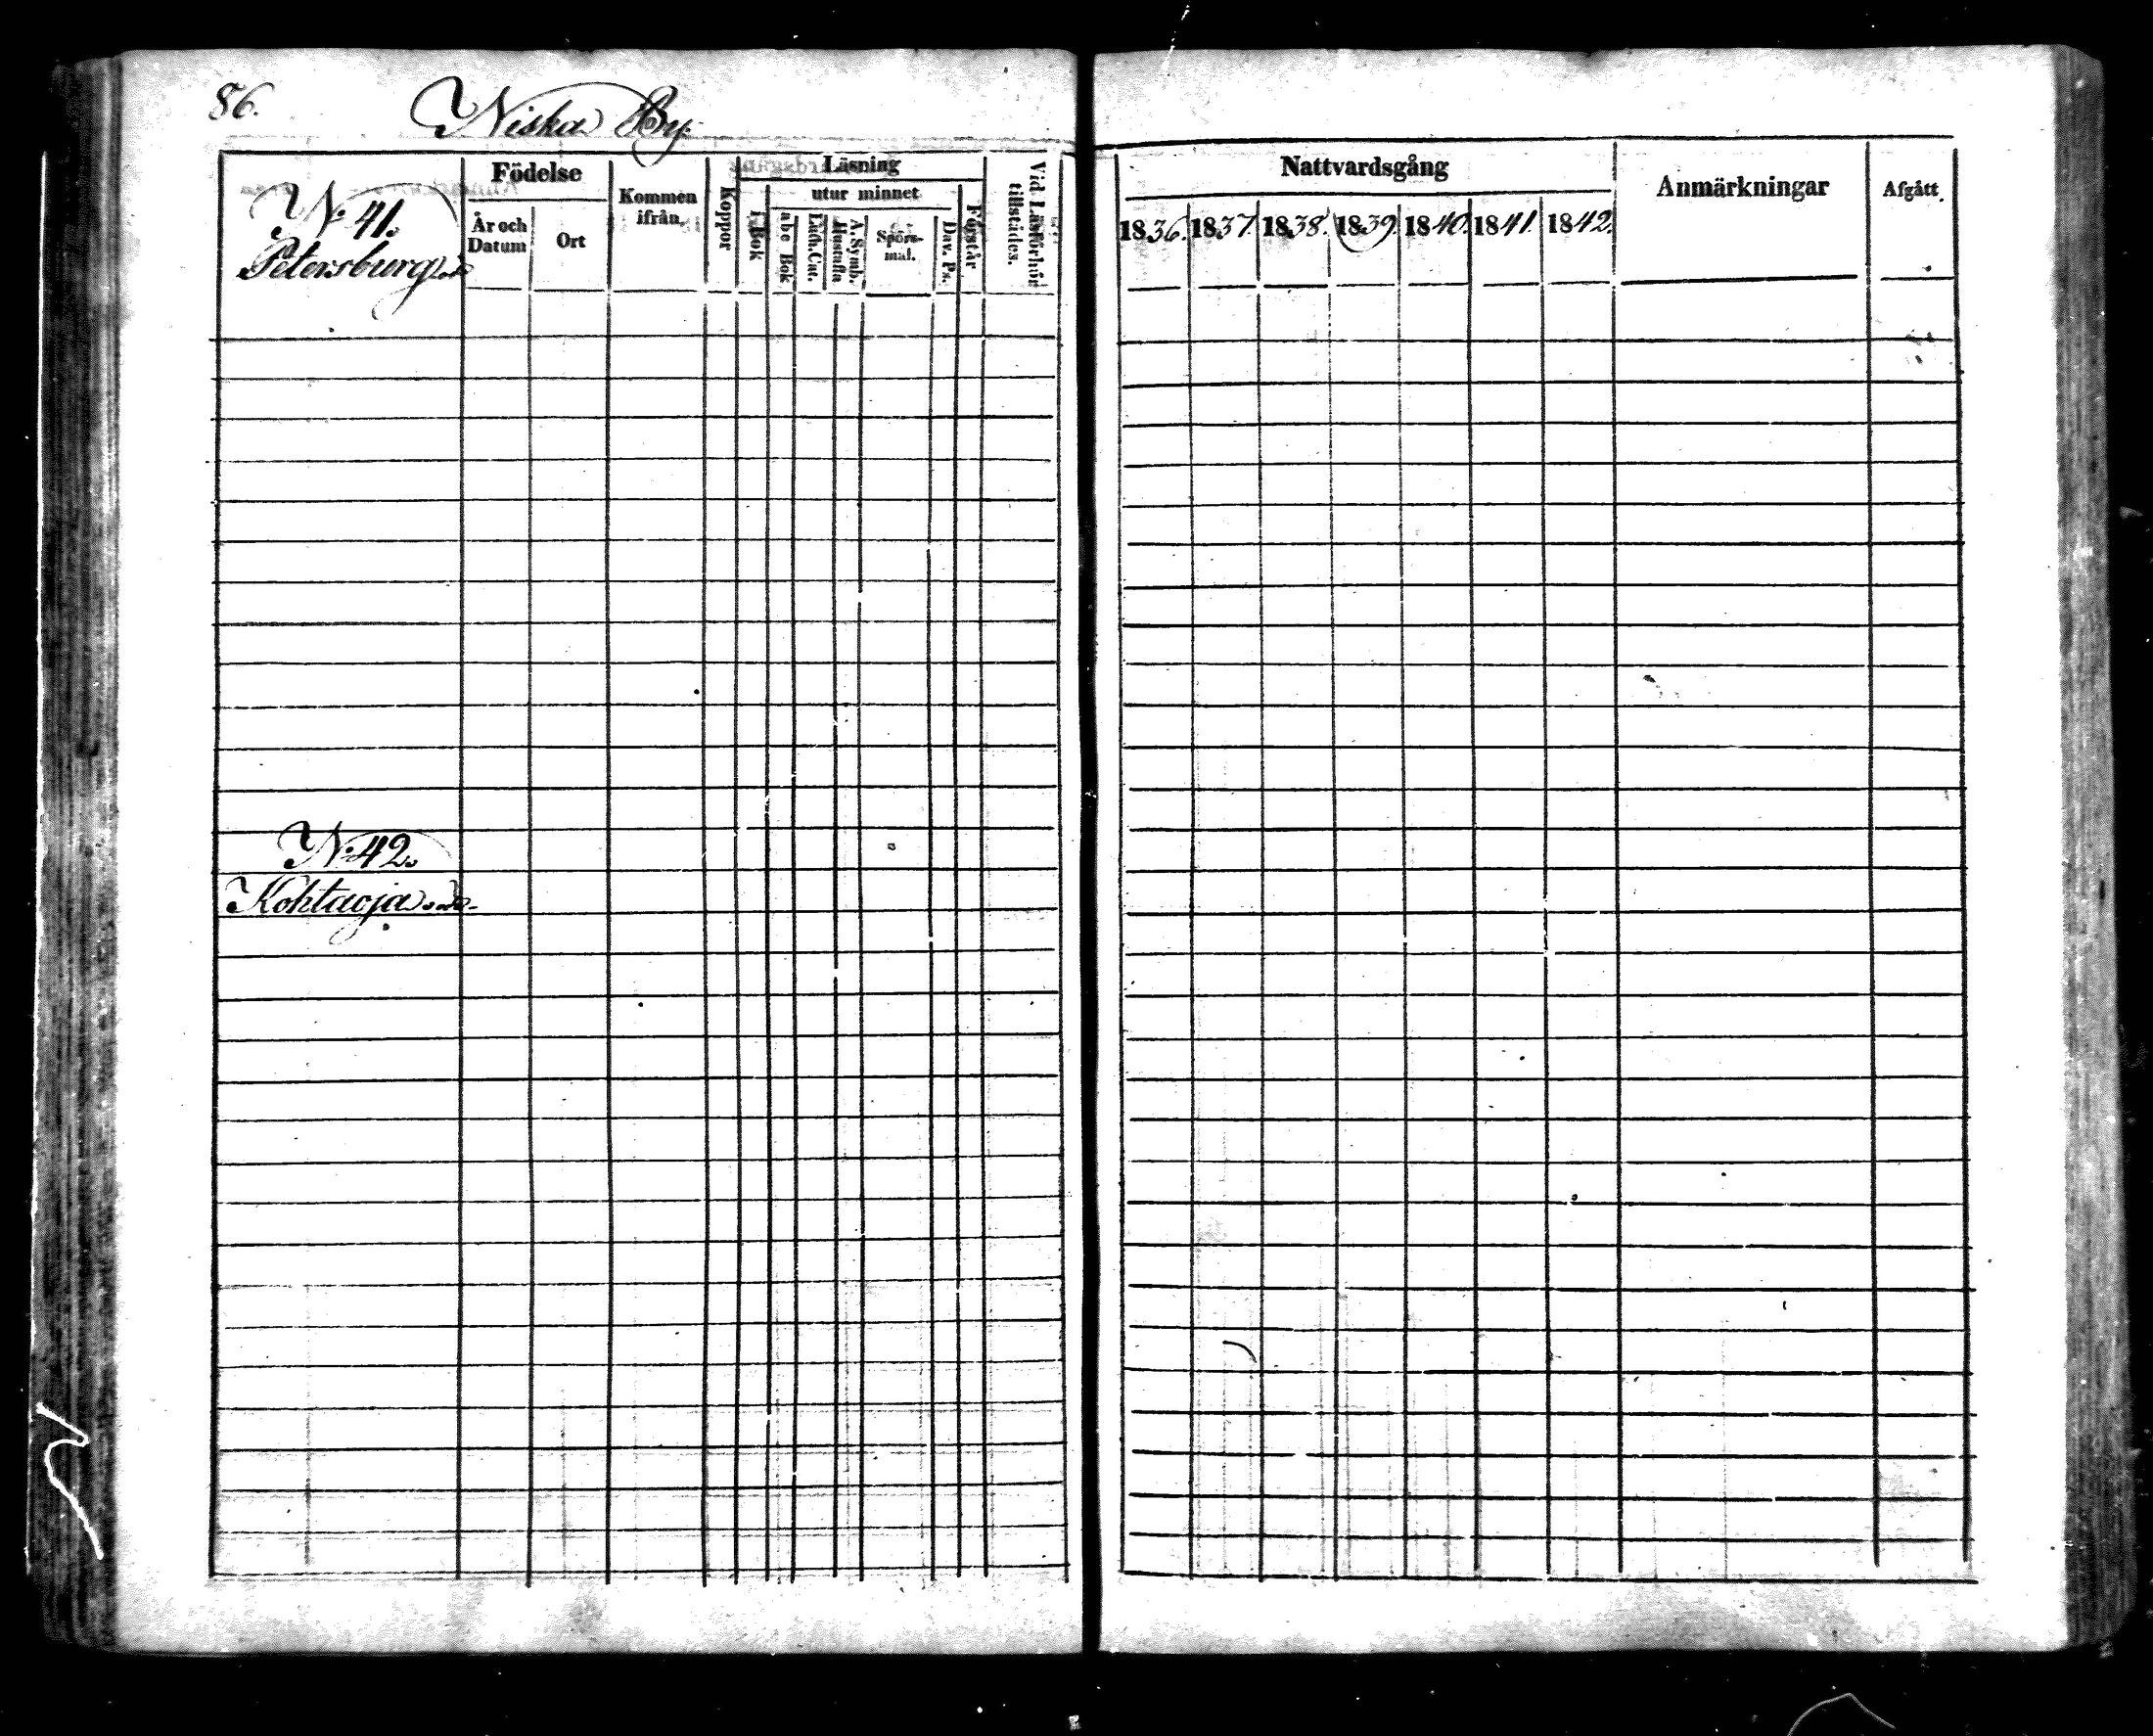 86.
Niska By.
N: 41.
Petersburg
Födelse
År och Datum
Ort
Kommen ifrån.
Koppor
Läsning
I Bok
utur minnet
abc Bok
Luth. Cat.
Hustafla
A. Symb.
Spörs-
mål.
Dav. Ps.
Förstår
Vid Läsförhör
tillstädes.
Nattvardsgång
1836. 1837. 1838. 1839. 1840. 1841. 1842.
Anmärkningar
Afgått.
N: 42.
Kohtaoja